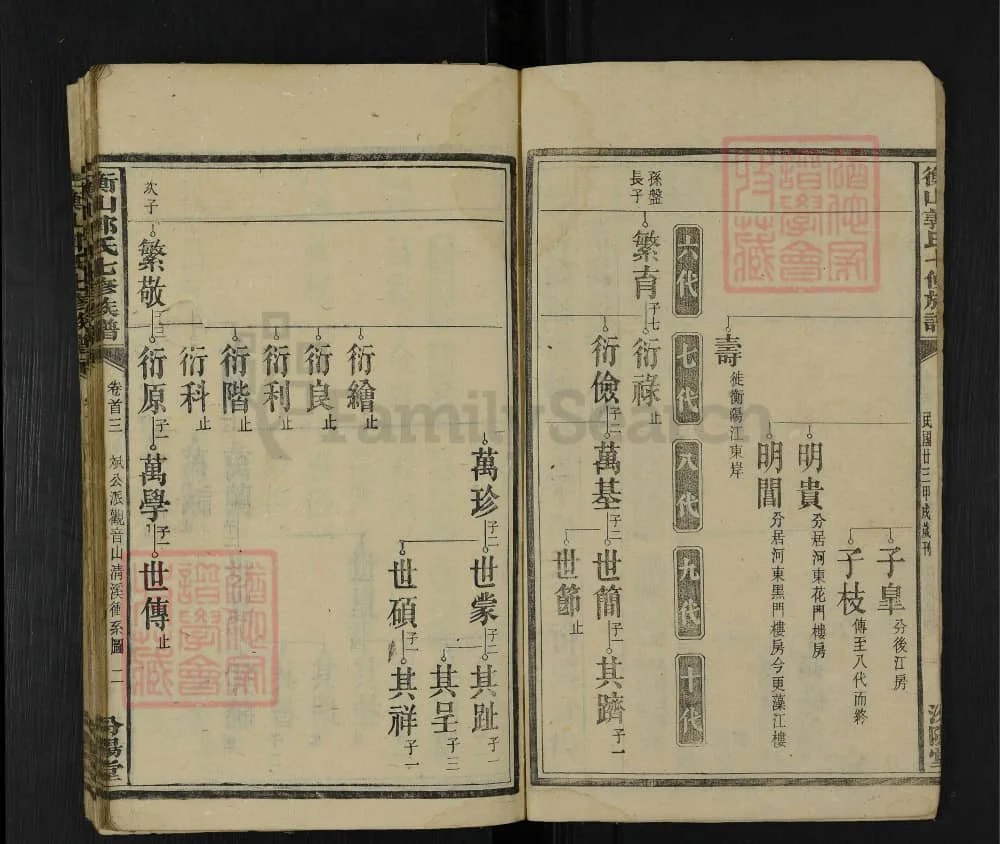 衡山郭氏七修族譜
民國廿三甲戌歲刊
汾陽堂
子皐 分後江房
子枝 傳至八代而終
明貴 分居河東花門樓房
明閶 分居河東黑門樓房今更藻江樓
壽 徙衡陽江東岸
六代
七代
八代
九代
十代
孫盤長子
繁育 子七
衍祿 止
衍儉 子二
萬基 子二
世簡 子一
其躋 子一
世節 止
萬珍 子二
世蒙 子二
其趾 子一
其呈 子三
世碩 子一
其祥 子一
衍繪 止
衍良 止
衍利 止
衍階 止
衍科 止
次子
繁敬 子三
衍原 子一
萬學 子一
世傳 止
衡山郭氏七修族譜
卷首三
斌公派觀音山清溪衝系圖
二
汾陽堂
FamilySearch